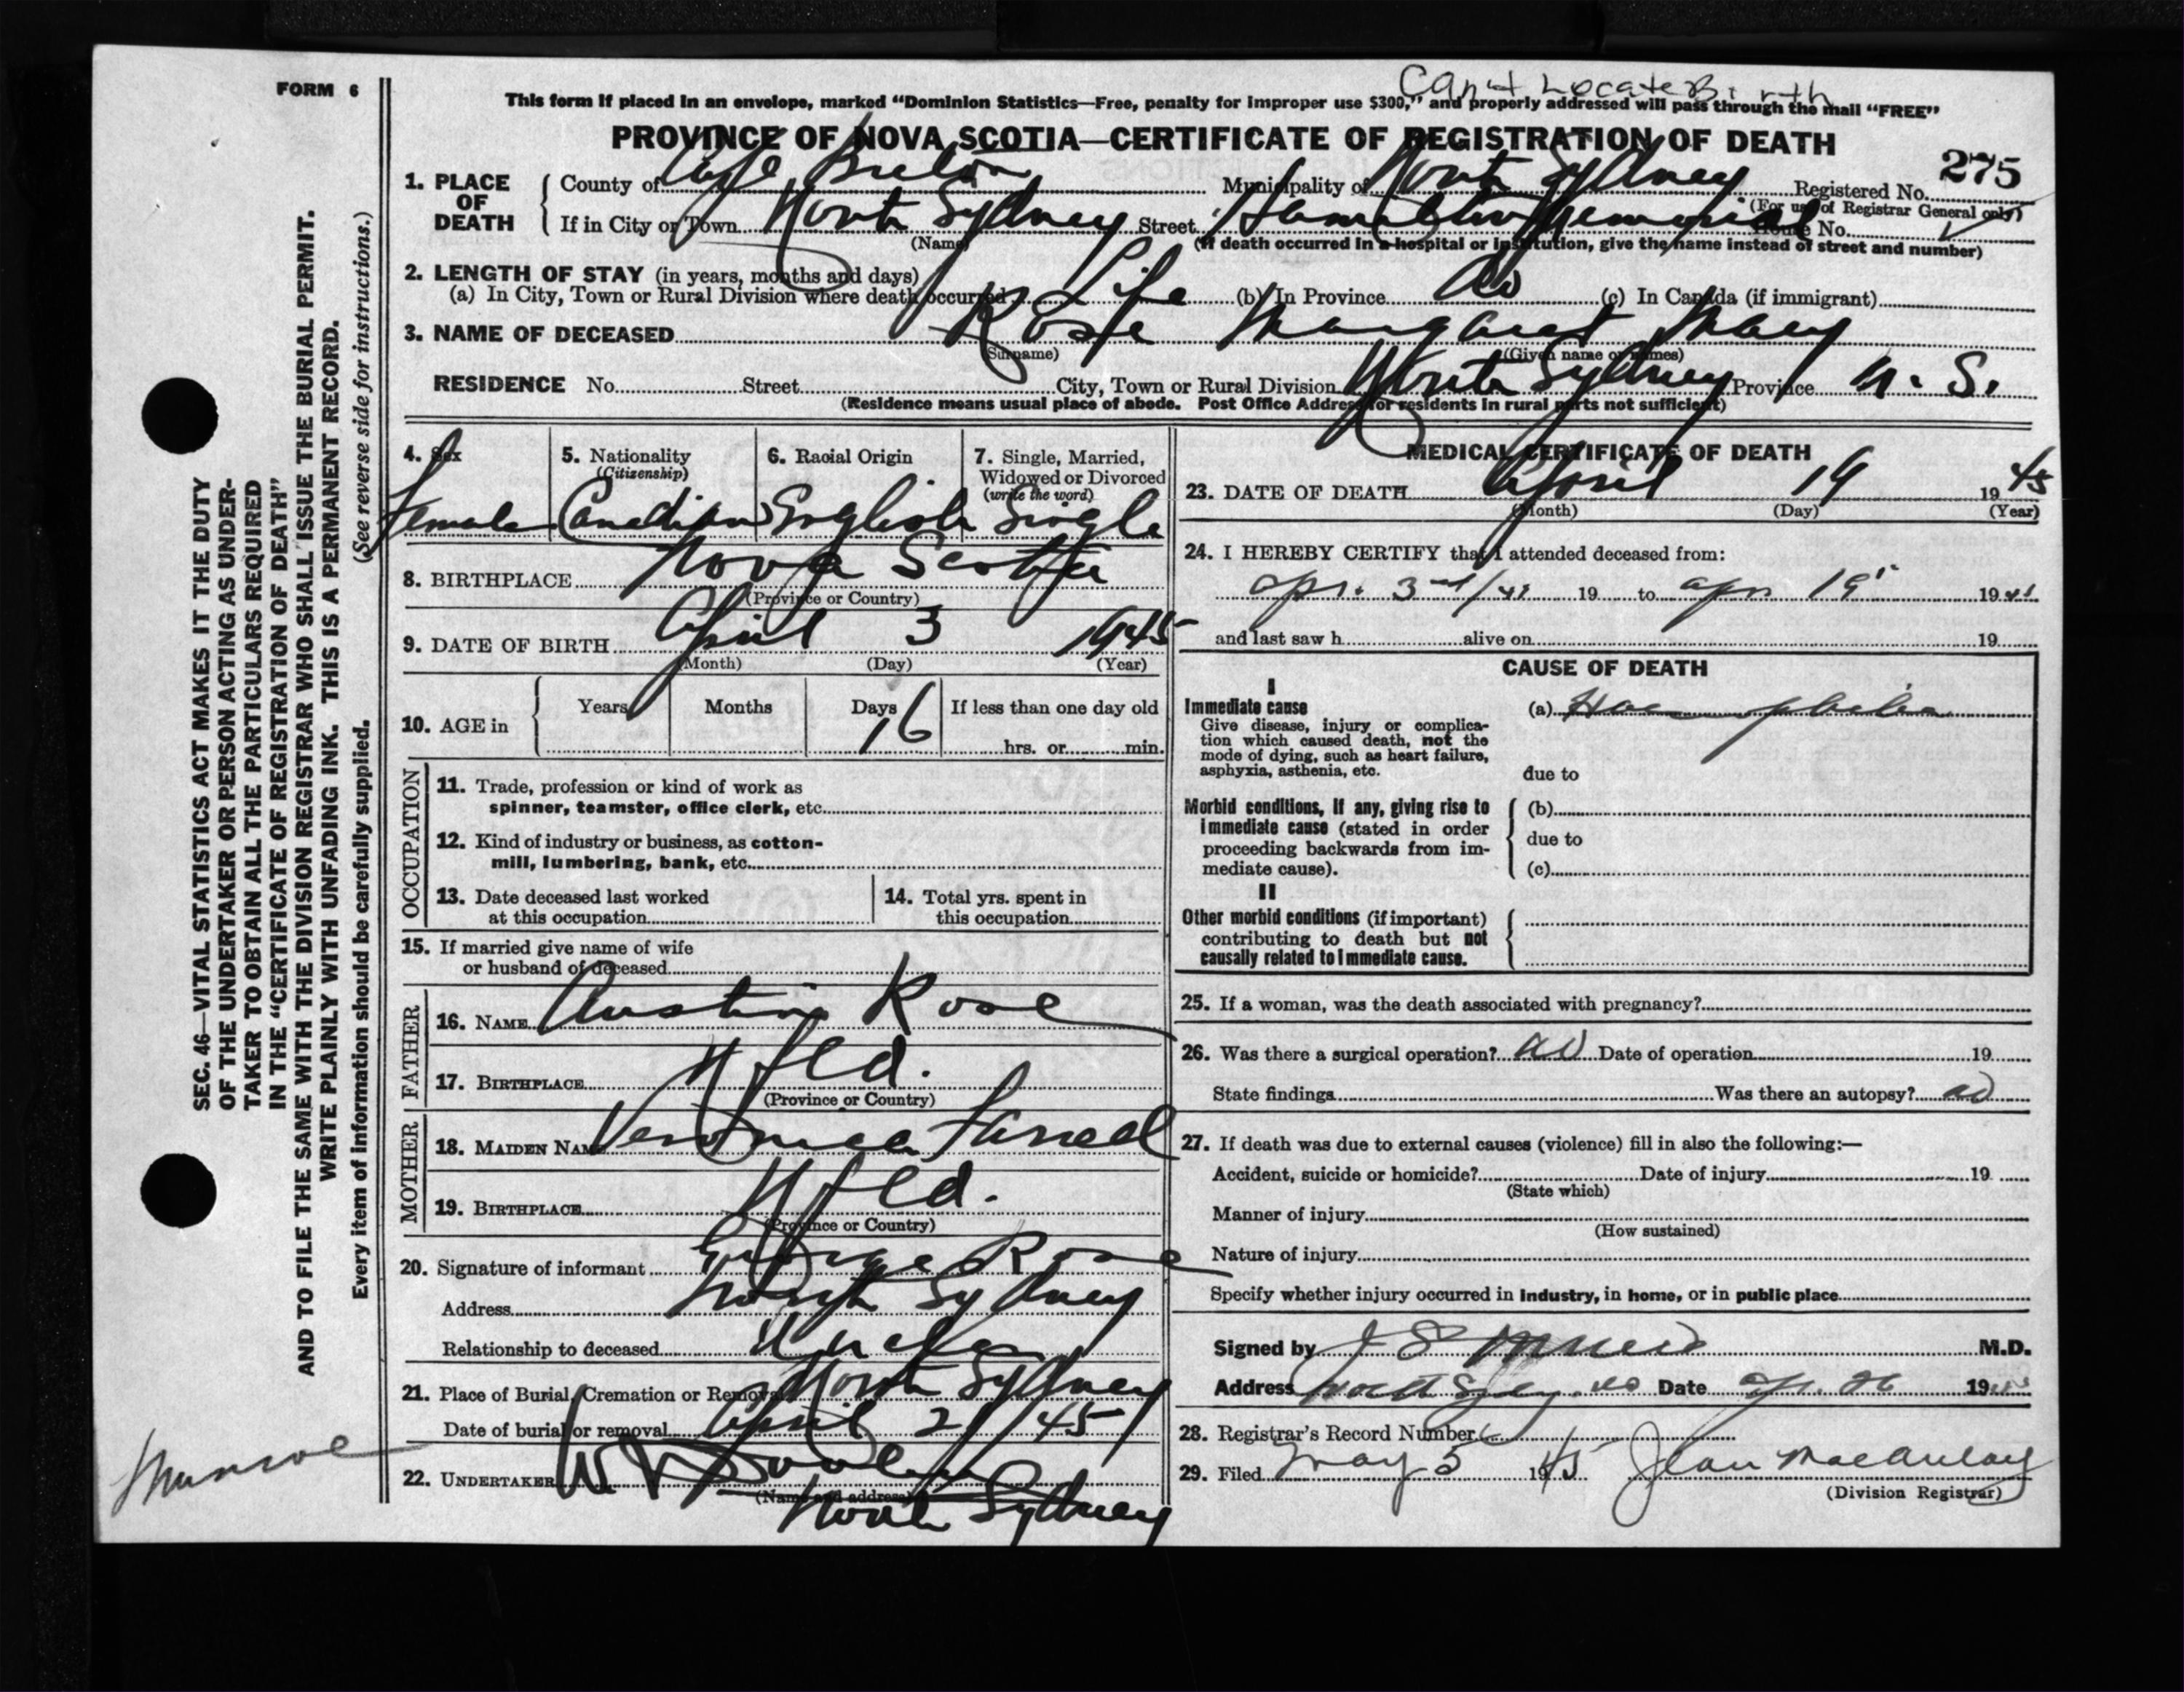 FORM 6
Can't Locate Birth
This form if placed in an envelope, marked "Dominion Statistics—Free, penalty for improper use $300," and properly addressed will pass through the mail "FREE"
PROVINCE OF NOVA SCOTIA—CERTIFICATE OF REGISTRATION OF DEATH
275
1. PLACE OF DEATH County of Cape Breton Municipality of North Sydney Registered No.
(For use of Registrar General only)
If in City or Town North Sydney Street Hamilton Memorial House No.
(Name) (If death occurred in a hospital or institution, give the name instead of street and number)
2. LENGTH OF STAY (in years, months and days)
(a) In City, Town or Rural Division where death occurred Life (b) In Province do (c) In Canada (if immigrant)
3. NAME OF DECEASED Rose Margaret Mary
(Surname) (Given name or names)
RESIDENCE No. Street City, Town or Rural Division North Sydney Province N. S.
(Residence means usual place of abode. Post Office Address for residents in rural parts not sufficient)
4. Sex Female
5. Nationality (Citizenship) Canadian
6. Racial Origin English
7. Single, Married, Widowed or Divorced (write the word) Single
8. BIRTHPLACE Nova Scotia
(Province or Country)
9. DATE OF BIRTH April 3 1945
(Month) (Day) (Year)
10. AGE in Years Months Days 16 If less than one day old
hrs. or min.
OCCUPATION
11. Trade, profession or kind of work as
spinner, teamster, office clerk, etc.
12. Kind of industry or business, as cotton-
mill, lumbering, bank, etc.
13. Date deceased last worked
at this occupation
14. Total yrs. spent in
this occupation
15. If married give name of wife
or husband of deceased
FATHER
16. NAME Austin Rose
17. BIRTHPLACE Nfld.
(Province or Country)
MOTHER
18. MAIDEN NAME Veronica Farrell
19. BIRTHPLACE Nfld.
(Province or Country)
20. Signature of informant George Rose
Address North Sydney
Relationship to deceased Uncle
21. Place of Burial, Cremation or Removal North Sydney
Date of burial or removal April 21/45
22. UNDERTAKER
(Name and address)
North Sydney
MEDICAL CERTIFICATE OF DEATH
23. DATE OF DEATH April 19 1945
(Month) (Day) (Year)
24. I HEREBY CERTIFY that I attended deceased from:
Apr. 3rd/45 19 to Apr 19 1945
and last saw h alive on 19
CAUSE OF DEATH
I
Immediate cause
Give disease, injury or complica-
tion which caused death, not the
mode of dying, such as heart failure,
asphyxia, asthenia, etc.
(a) Haemophilia
due to
Morbid conditions, if any, giving rise to
immediate cause (stated in order
proceeding backwards from im-
mediate cause).
(b)
due to
(c)
II
Other morbid conditions (if important)
contributing to death but not
causally related to immediate cause.
25. If a woman, was the death associated with pregnancy?
26. Was there a surgical operation? no Date of operation 19
State findings Was there an autopsy? no
27. If death was due to external causes (violence) fill in also the following:—
Accident, suicide or homicide? Date of injury 19
(State which)
Manner of injury
(How sustained)
Nature of injury
Specify whether injury occurred in industry, in home, or in public place
Signed by M.D.
Address North Sydney Date Apr. 26 19
28. Registrar's Record Number
29. Filed May 5 1945 Jean MacAulay
(Division Registrar)
Munroe
SEC. 46—VITAL STATISTICS ACT MAKES IT THE DUTY
OF THE UNDERTAKER OR PERSON ACTING AS UNDER-
TAKER TO OBTAIN ALL THE PARTICULARS REQUIRED
IN THE "CERTIFICATE OF REGISTRATION OF DEATH"
AND TO FILE THE SAME WITH THE DIVISION REGISTRAR WHO SHALL ISSUE THE BURIAL PERMIT.
WRITE PLAINLY WITH UNFADING INK. THIS IS A PERMANENT RECORD.
Every item of information should be carefully supplied. (See reverse side for instructions.)